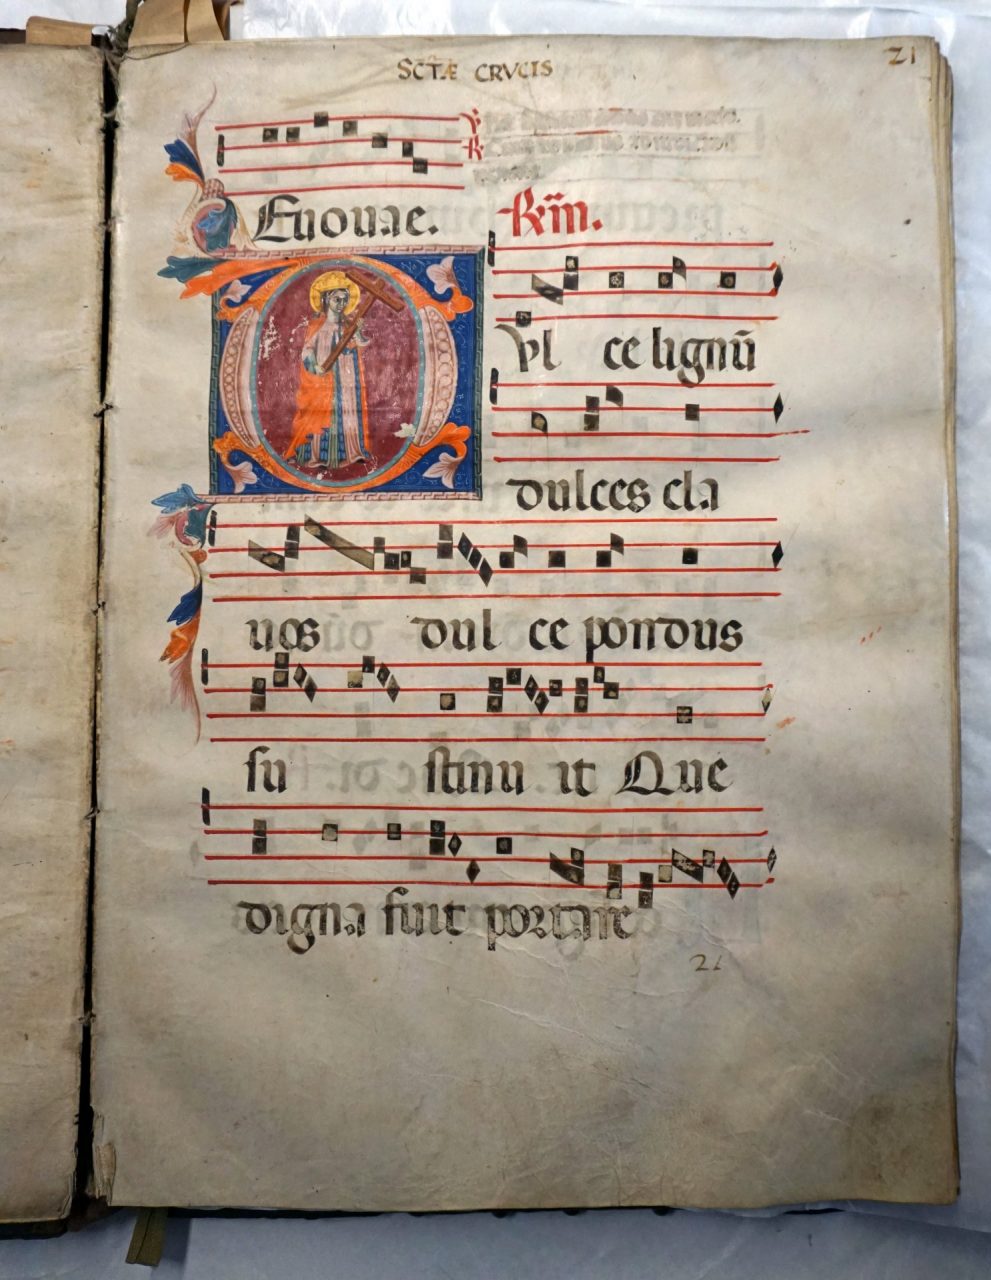 SCTÆ CRVCIS
21
℣
℟
Euouae. R̃m̃.
Vl ce lignũ
dulces cla
uos dul ce pondus
su stinu it Que
digna fuit portare
21